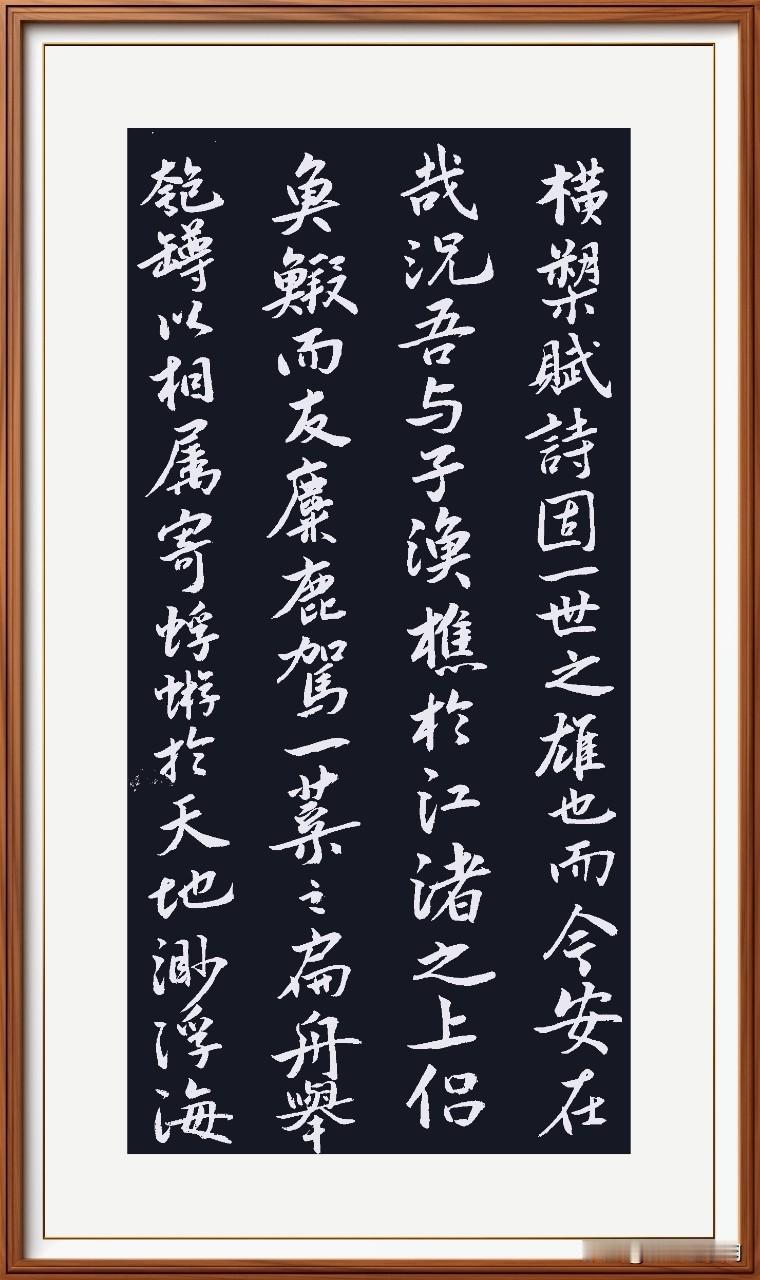 橫槊賦詩固一世之雄也而今安在
哉況吾与子漁樵於江渚之上侶
魚鰕而友麋鹿駕一葉之扁舟舉
匏罇以相属寄蜉蝣於天地渺浮海